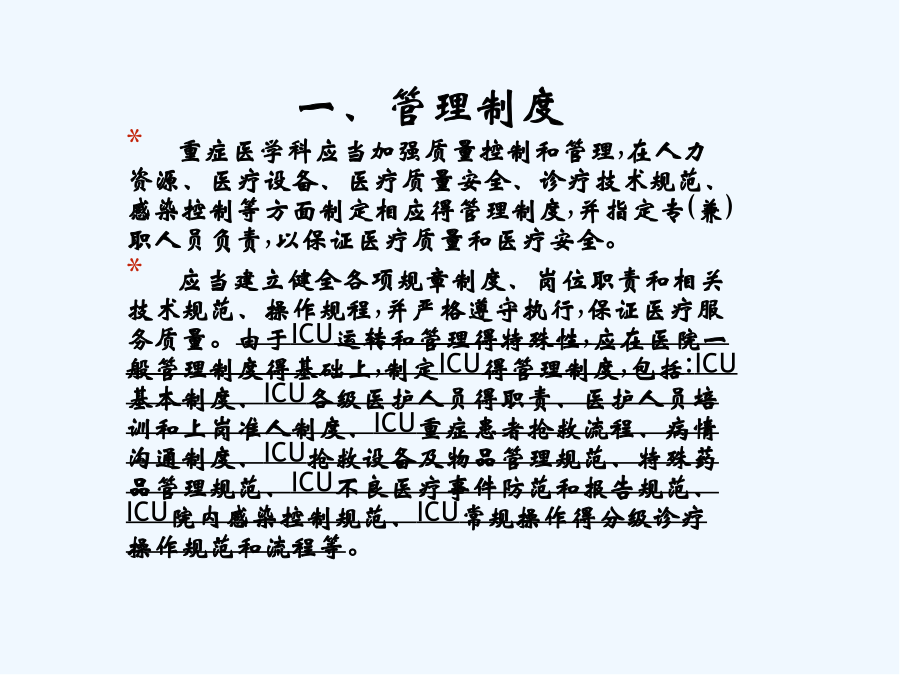 一、管理制度
* 重症医学科应当加强质量控制和管理,在人力
资源、医疗设备、医疗质量安全、诊疗技术规范、
感染控制等方面制定相应得管理制度,并指定专(兼)
职人员负责,以保证医疗质量和医疗安全。
* 应当建立健全各项规章制度、岗位职责和相关
技术规范、操作规程,并严格遵守执行,保证医疗服
务质量。由于ICU运转和管理得特殊性,应在医院一
般管理制度得基础上,制定ICU得管理制度,包括:ICU
基本制度、ICU各级医护人员得职责、医护人员培
训和上岗准人制度、ICU重症患者抢救流程、病情
沟通制度、ICU抢救设备及物品管理规范、特殊药
品管理规范、ICU不良医疗事件防范和报告规范、
ICU院内感染控制规范、ICU常规操作得分级诊疗
操作规范和流程等。